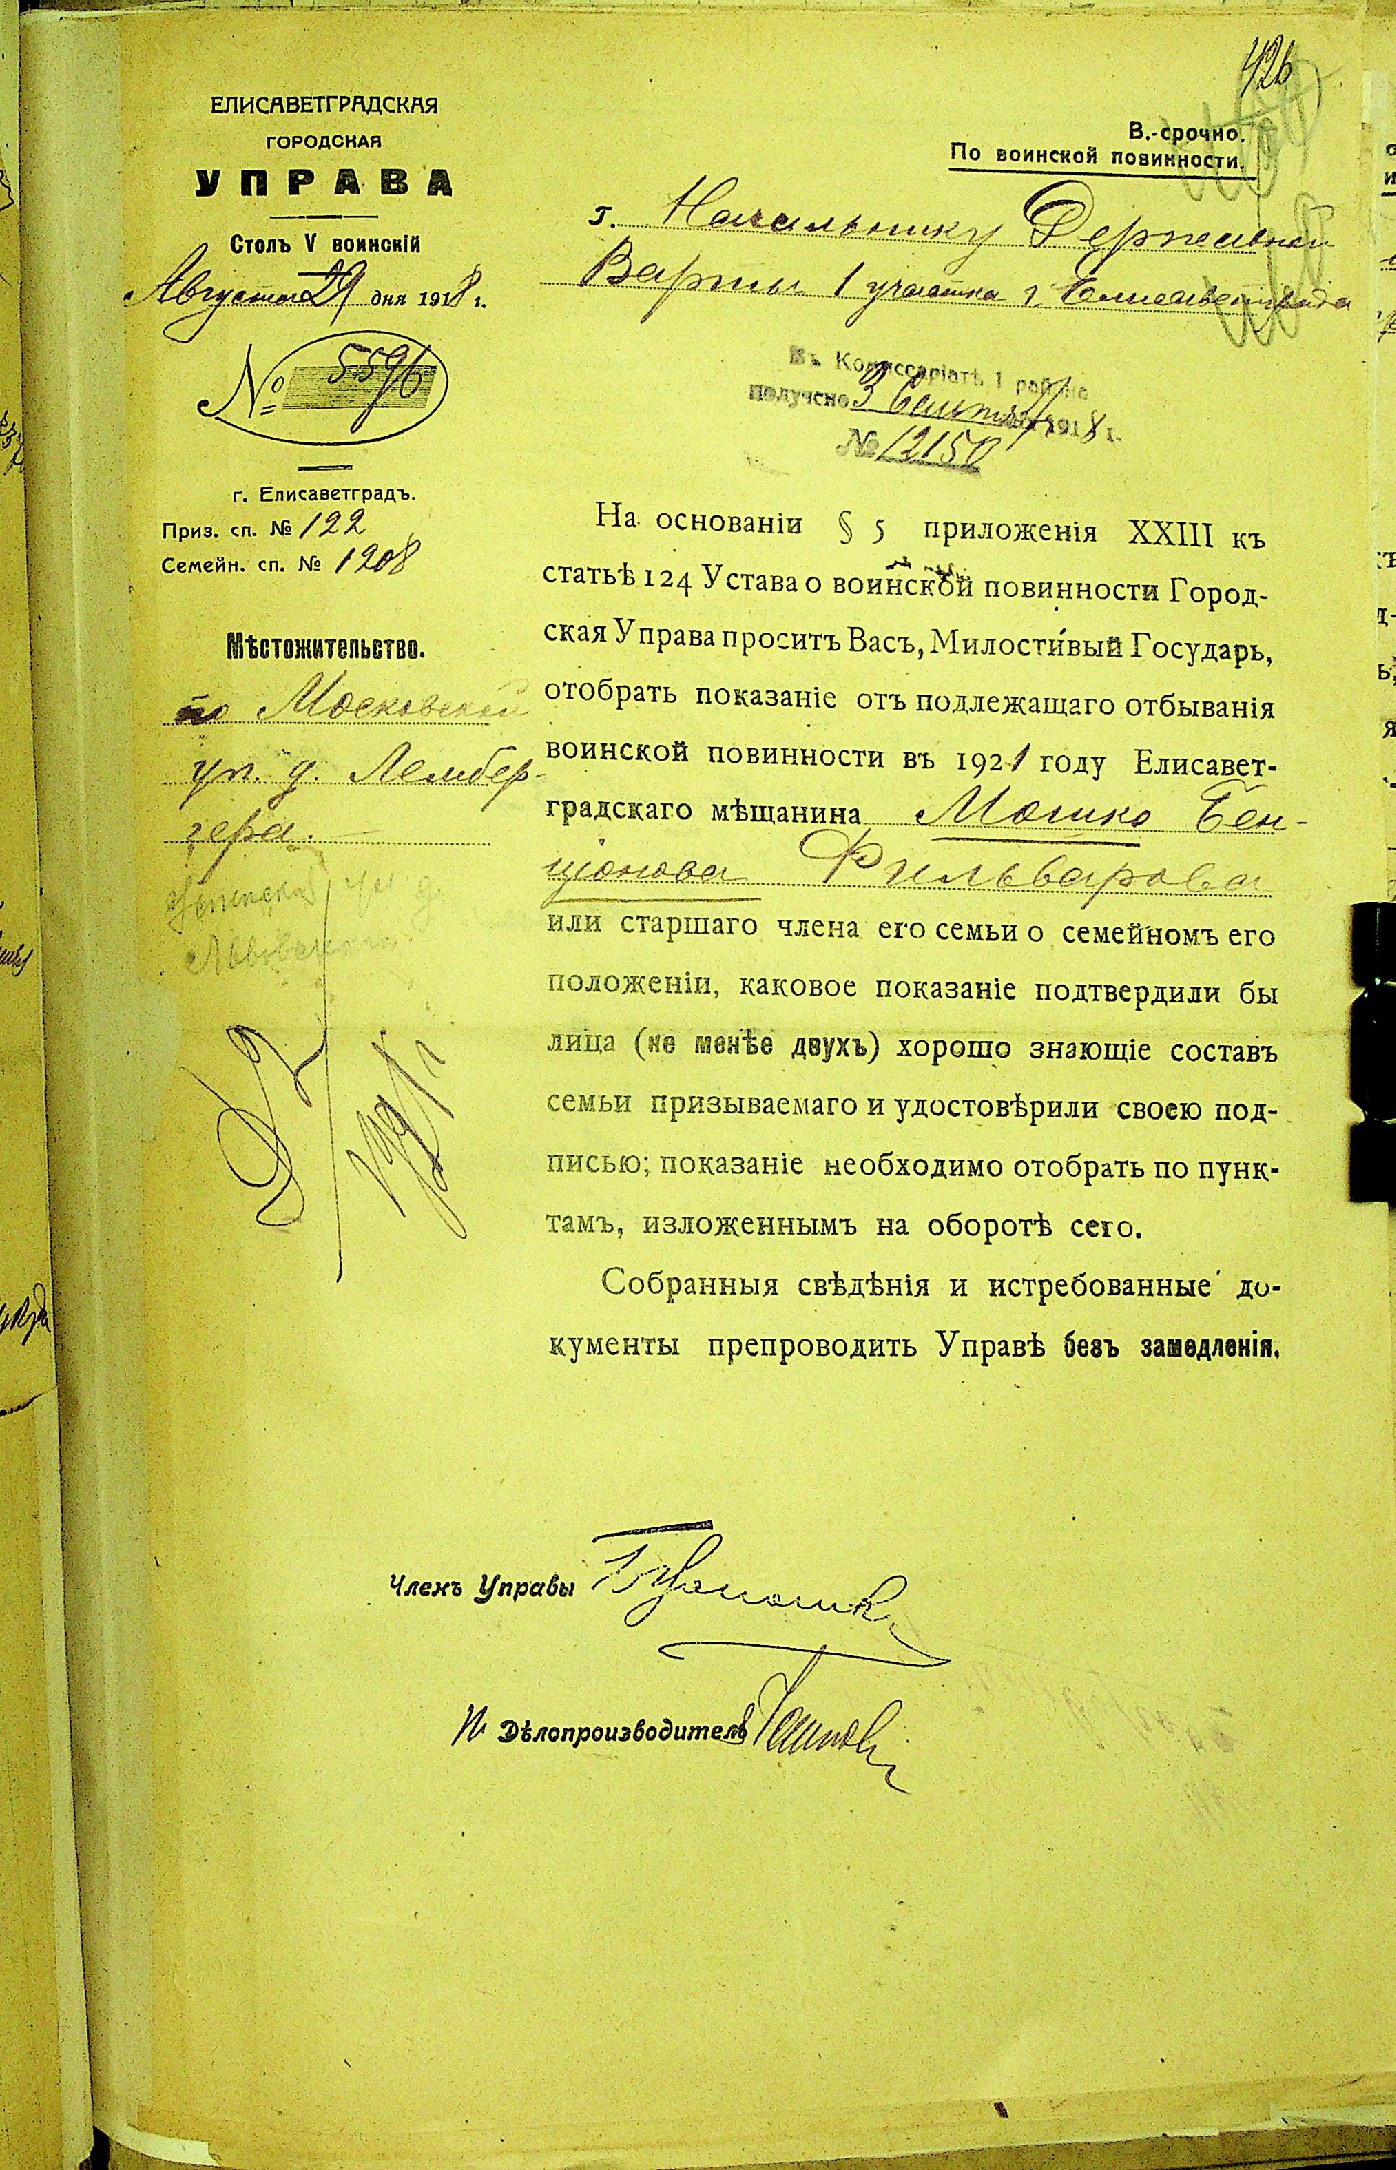 426
ЕЛИСАВЕТГРАДСКАЯ
ГОРОДСКАЯ
УПРАВА
Столъ V воинскій
Августа 29 дня 1918 г.
№ 5596
г. Елисаветградъ.
Приз. сп. № 122
Семейн. сп. № 1208
Мѣстожительство.
по Московской
ул. д. Лембер-
гера.
В.-срочно.
По воинской повинности.
г. Начальнику Державной
Варты 1 участка г. Елисаветграда
Въ Комиссаріатѣ 1 района
получено 3 Сентября 1918 г.
№ 12150
На основаніи § 5 приложенія XXIII къ
статьѣ 124 Устава о воинской повинности Город-
ская Управа проситъ Васъ, Милостивый Государь,
отобрать показаніе отъ подлежащаго отбыванія
воинской повинности въ 1921 году Елисавет-
градскаго мѣщанина Мошко Бен-
ціонова Фильварова
или старшаго члена его семьи о семейномъ его
положеніи, каковое показаніе подтвердили бы
лица (не менѣе двухъ) хорошо знающіе составъ
семьи призываемаго и удостовѣрили своею под-
писью; показаніе необходимо отобрать по пунк-
тамъ, изложеннымъ на оборотѣ сего.
Собранныя свѣдѣнія и истребованные до-
кументы препроводить Управѣ безъ замедленія.
Членъ Управы
Дѣлопроизводитель